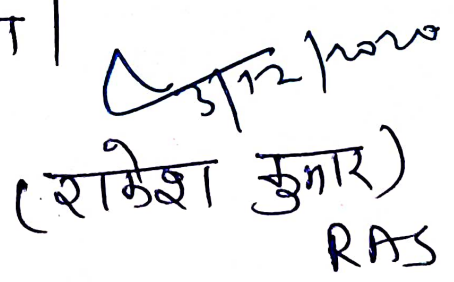 T |
3/12/2020
(राकेश कुमार)
RAS